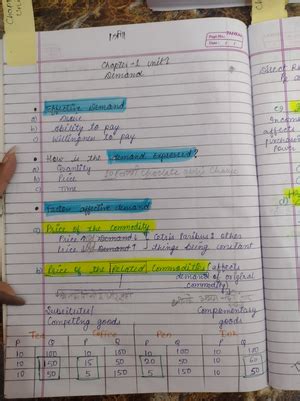 Page No.
Date:
Chapter-1 Unit 2
Demand
Effective Demand
a) Desire
b) ability to pay
c) Willingness to pay
How is the Demand Expressed?
a) Quantity
b) Price
c) Time
Factor affective demand
a) Price of the commodity
Price Demand ↓ Cetris Paribus & other
Price Demand ↑ things being constant
b) Price of the related Commodities (affects
demand of original
commodity)
Substitutes/ Complementary
Competing goods goods
Tea Coffee Pen Ink
P Q P Q P Q P Q
10 100 10 100 10 100 10 100
10 150 15 50 20 50 10 60
10 50 5 150 5 150 10
Direct R
c)
Income
affects
purchasing
Power